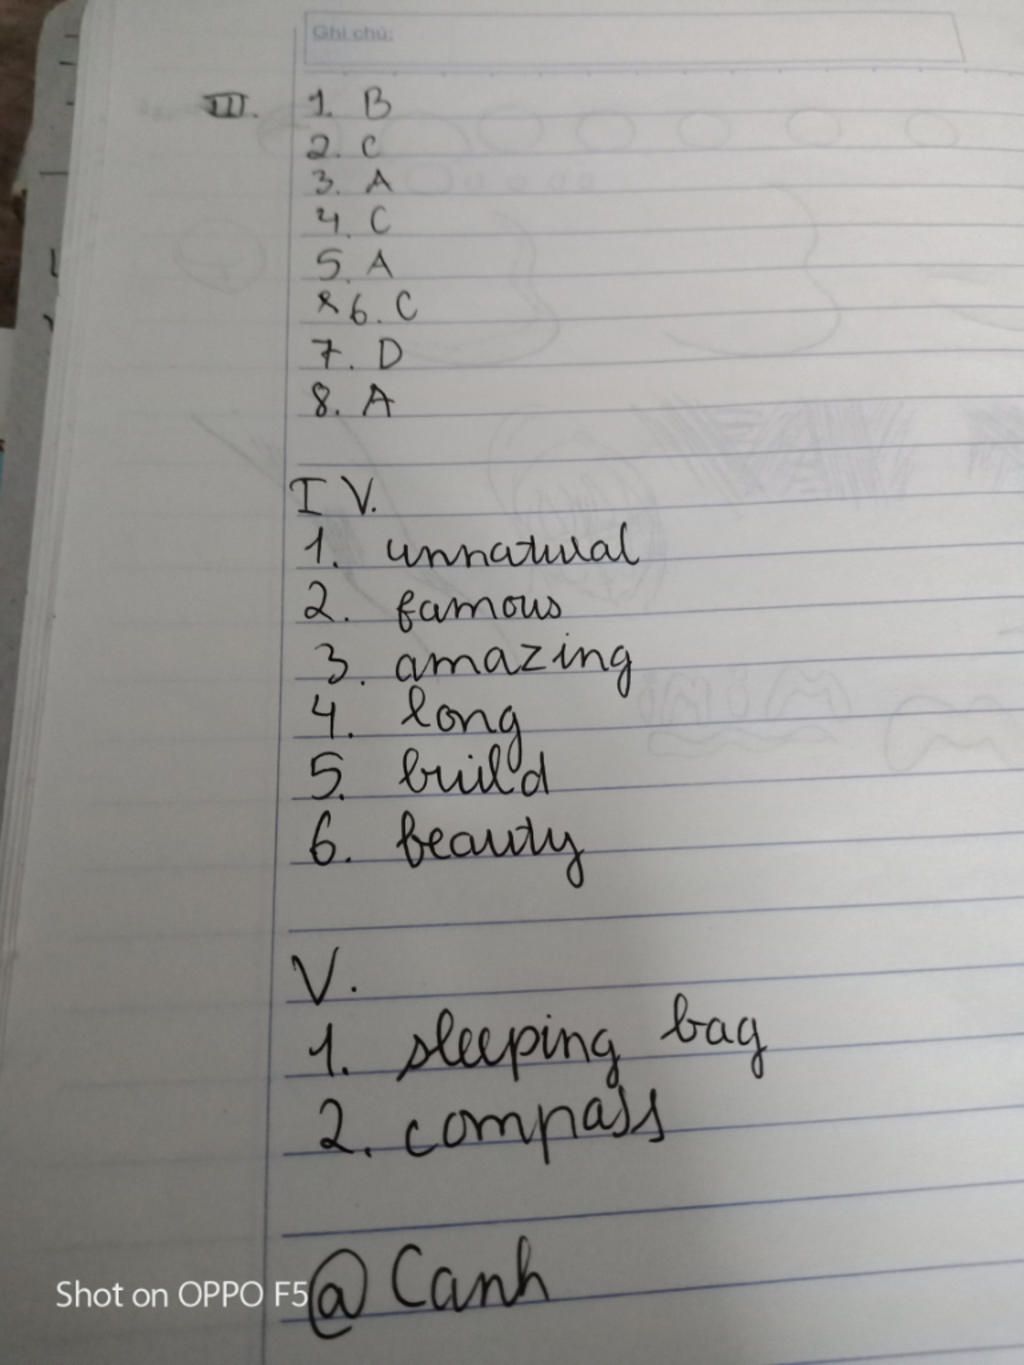 Ghi chú:
III. 1. B
2. C
3. A
4. C
5. A
6. C
7. D
8. A
IV.
1. unnatural
2. famous
3. amazing
4. long
5. build
6. beauty
V.
1. sleeping bag
2. compass
@ Canh
Shot on OPPO F5